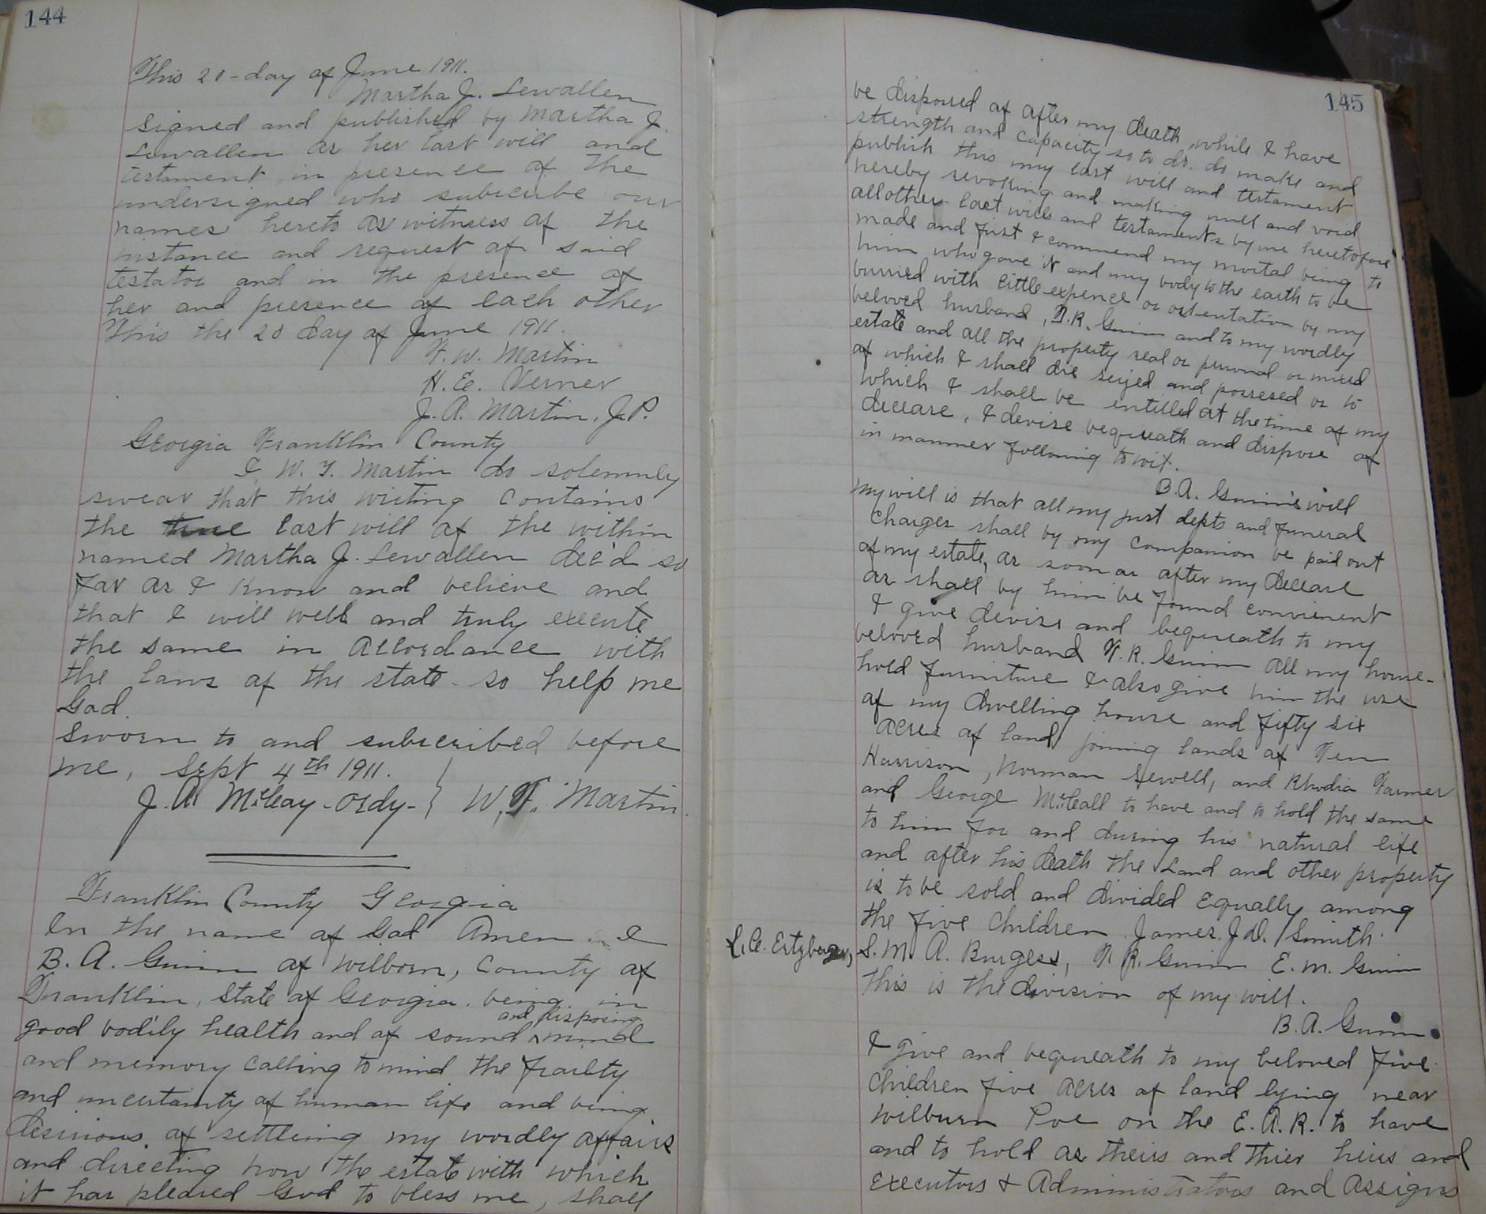 144
This 20-day of June 1911.
Martha J. Lewallen
Signed and published by Martha J.
Lewallen as her last will and
testament in presence of the
undersigned who subscribe our
names hereto as witness at the
instance and request of said
testator and in the presence of
her and presence of each other
This the 20 day of June 1911.
F. W. Martin
H. E. Verner
J. A. Martin, J.P.
Georgia Franklin County
I W. F. Martin do solemnly
swear that this writing contains
the true last will of the within
named Martha J. Lewallen dec'd so
far as I know and believe and
that I will well and truly execute
the same in accordance with
the laws of the state so help me
God.
Sworn to and subscribed before
me, Sept 4th 1911.
J. A. McCay-Ordy- W. F. Martin.
Franklin County Georgia
In the name of God Amen. I
B. A. Guinn of Wilborn, County of
Franklin, State of Georgia. being in
and disposing
good bodily health and of sound ^ mind
and memory calling to mind the frailty
and uncertainty of human life and being
desirious of settleing my wordly affairs
and directing how the estate with which
it has pleased God to bless me, shall
145
be disposed of after my death, while I have
strength and capacity so to do. do make and
publish this my last will and testament
hereby revoking and making null and void
all other last will and testaments by me heretofore
made and first I commend my mortal being to
him who gave it and my body to the earth to be
burried with little expence or ostentation by my
beloved husband, F. R. Guinn and to my wordly
estate and all the property real or personal or mixed
of which I shall die seized and possesed or to
which I shall be entitled at the time of my
decease, I devise bequeath and dispose of
in manner following to wit.
B. A. Guinn's will
My will is that all my just depts and funeral
charges shall by my companion be paid out
of my estate, as soon as after my decease
as shall by him be found convienent
I give devise and bequeath to my
beloved husband F. R. Guinn all my house-
hold furniture I also give him the use
of my dwelling house and fifty six
acres of land joining lands of Ten
Harrison, Norman Sewell, and Rhodia Farmer
and George McCall to have and to hold the same
to him for and during his natural life
and after his death the Land and other property
is to be sold and divided equally among
the five children James J. D. Smith.
L. C. Ertzberger, S. M. A. Burgess, F. R. Guinn E. M. Guinn
this is the division of my will.
B. A. Guinn
I give and bequeath to my beloved five
children five acres of land lying near
Wilburn Poe on the E. A. R. to have
and to hold as theirs and thier heirs and
executors & Administrators and Assigns